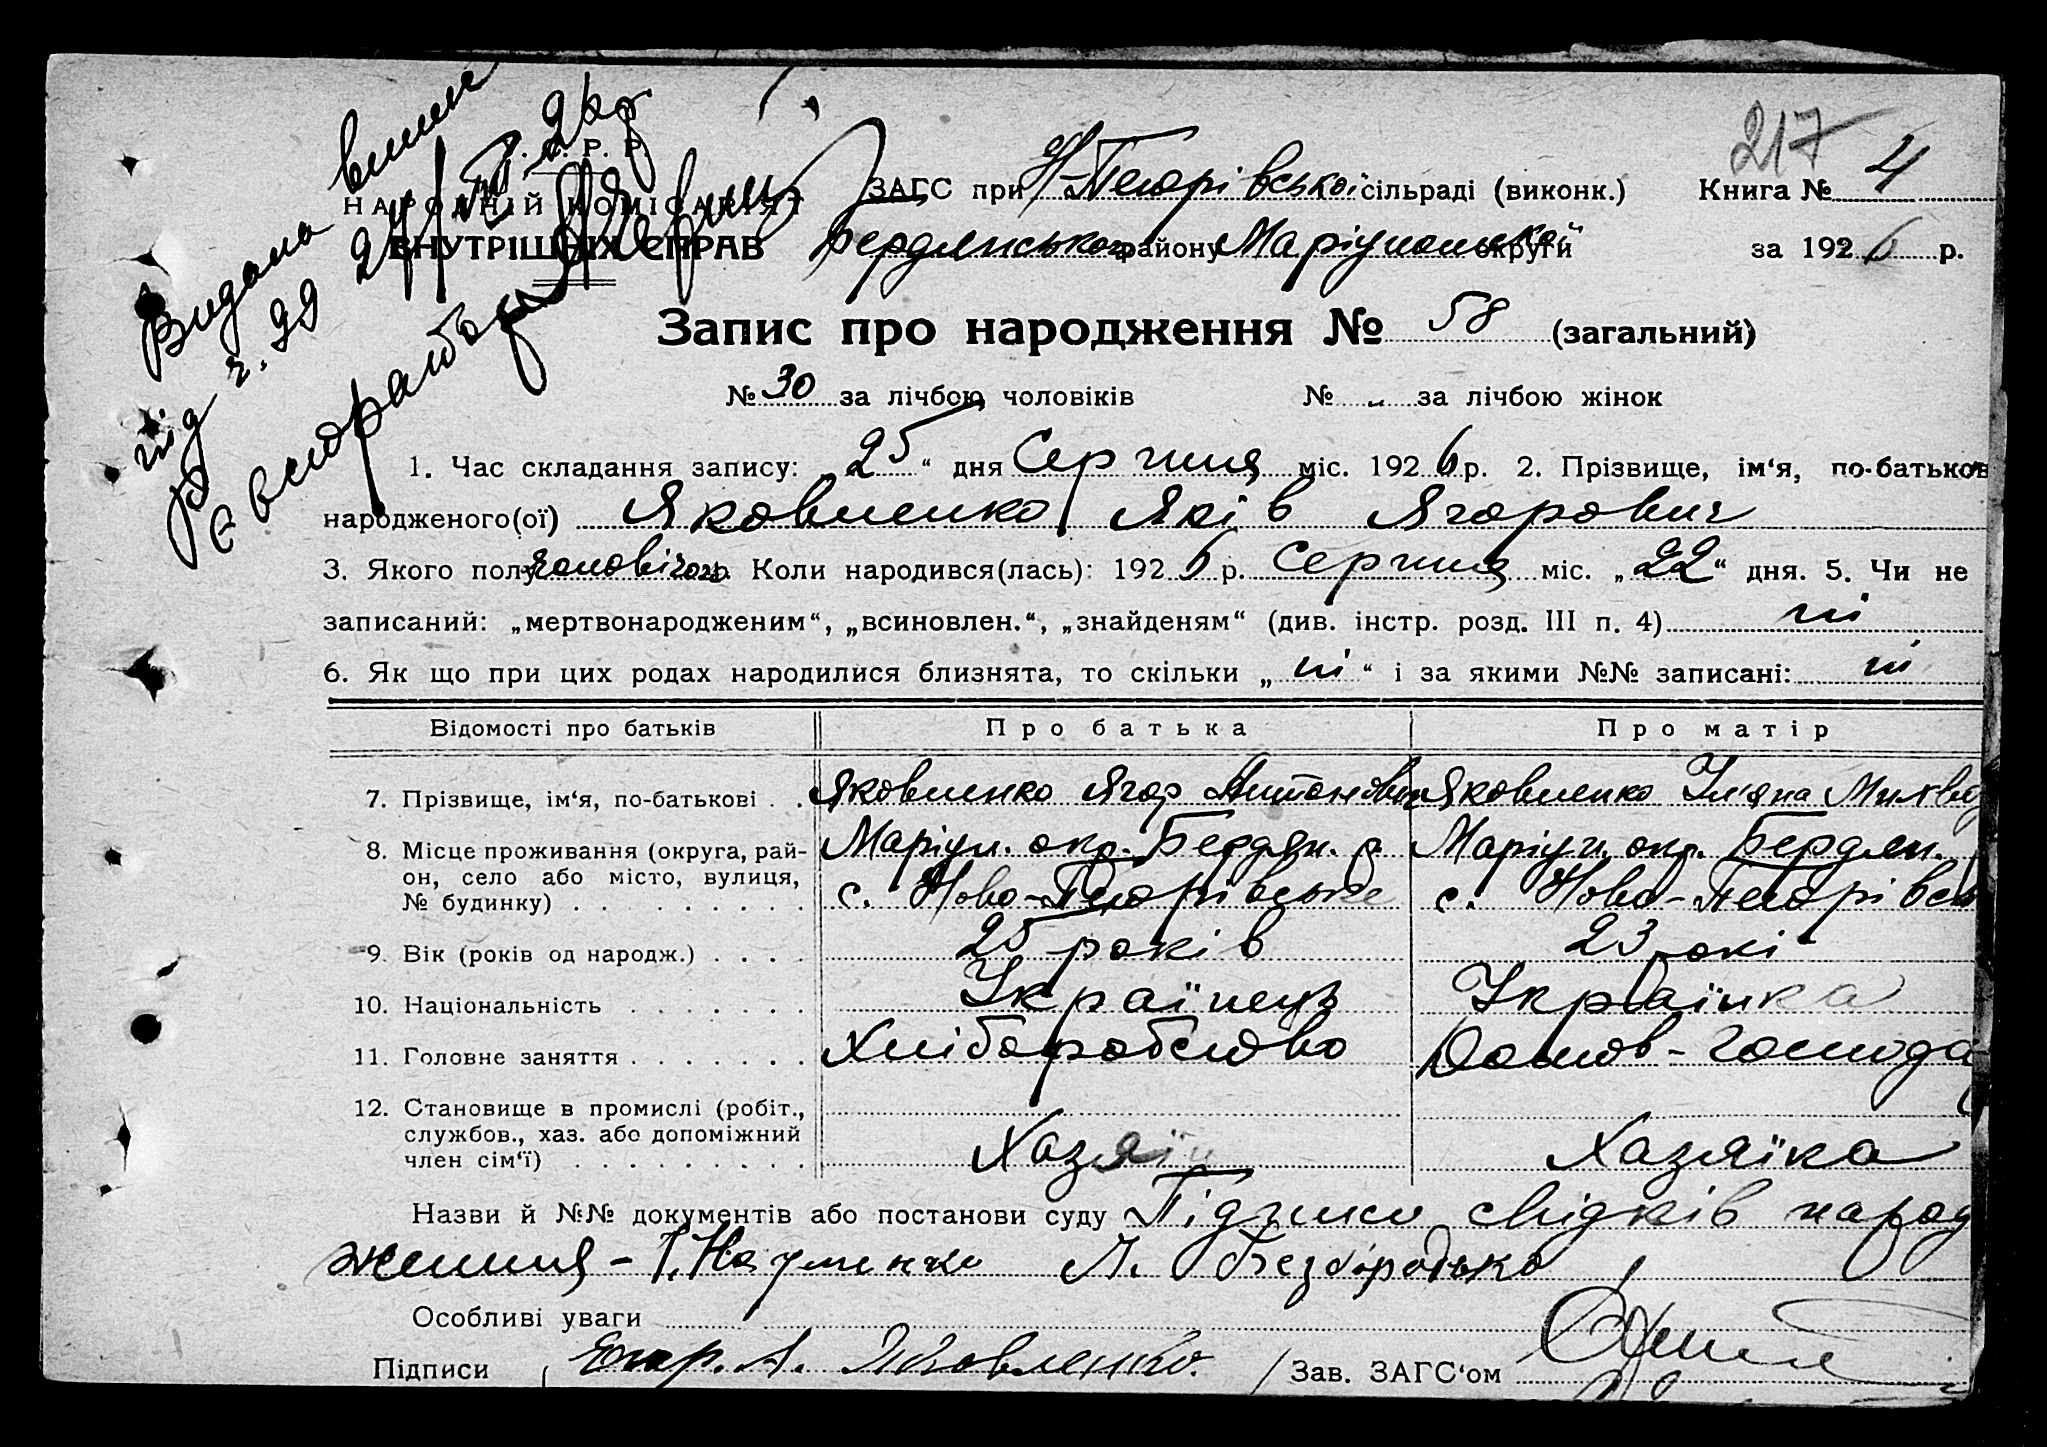 Видана випис
під ч. 99 24/VI 2кр
Р. Р.
Секретар
217
НАРОДНІЙ КОМІСАРІЯТ
ВНУТРІШНІХ СПРАВ
ЗАГС при Н-Петрівській сільраді (виконк.) Книга № 4
Бердянського району Маріупольської округи за 1926 р.
Запис про народження № 58 (загальний)
№ 30 за лічбою чоловіків № „ за лічбою жінок
1. Час складання запису: „25“ дня Серпня міс. 1926 р. 2. Прізвище, ім‘я, по-батьков
народженого(ої) Яковленко Яків Ягорович
3. Якого полу чоловічого. Коли народився(лась): 1926 р. Серпня міс. „22“ дня. 5. Чи не
записаний: „мертвонародженим“, „всиновлен.“, „знайденям“ (див. інстр. розд. III п. 4) ні
6. Як що при цих родах народилися близнята, то скільки „ні“ і за якими №№ записані: ні
Відомості про батьків Про батька Про матір
7. Прізвище, ім‘я, по-батькові . . Яковленко Ягор Антонович Яковленко Уляна
8. Місце проживання (округа, рай- Маріуп. окр. Бердян. р. Маріуп. окр. Бердян.
он, село або місто, вулиця, с. Ново-Петрівське с. Ново-Петрівсь
№ будинку) . . . . . . . . .
9. Вік (років од народж.) . . . . 25 років 23 рокі
10. Національність . . . . . . . Українець Українка
11. Головне заняття . . . . . . . Хліборобство Домов-господа
12. Становище в промислі (робіт.,
службов., хаз. або допоміжний Хазяїн Хазяїка
член сім‘ї) . . . . . . . . .
Назви й №№ документів або постанови суду Підписи свідків народ
ження - І. Науменко Л. Безбородько
Особливі уваги
Підписи Егор. А. Яковленко. Зав. ЗАГС‘ом